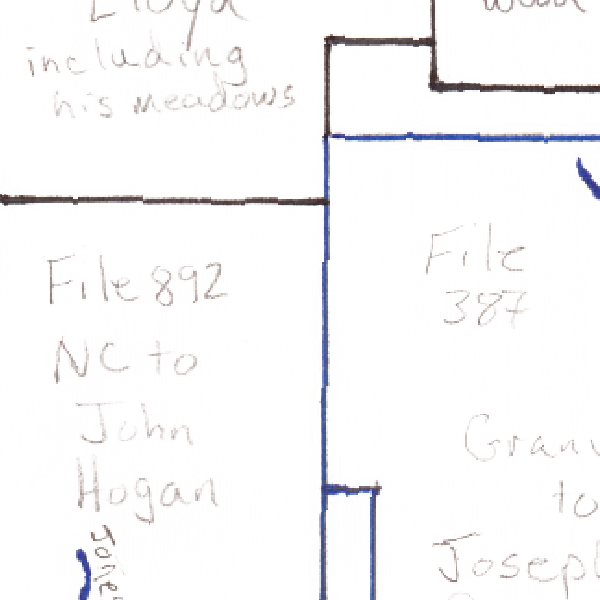 Lloyd
including
his meadows
File 892
NC to
John
Hogan
Jones
File
387
to
Joseph